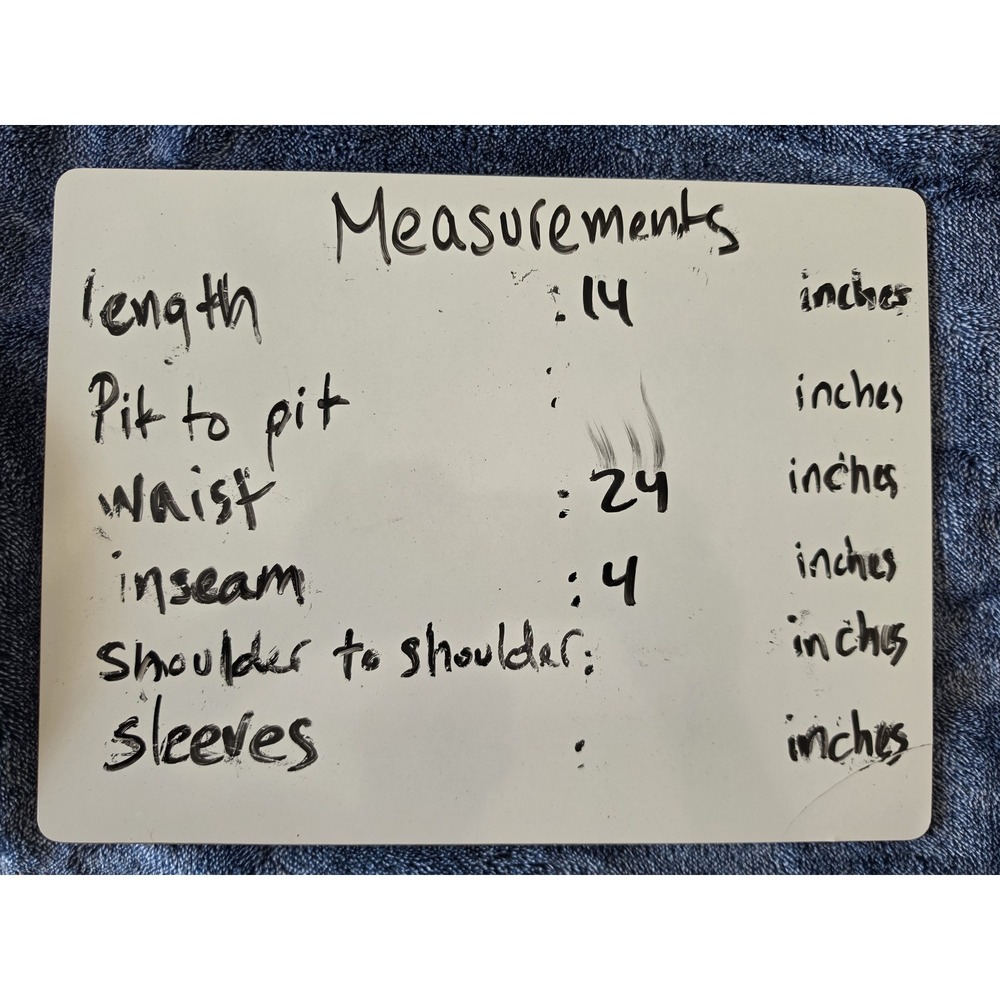 Measurements
length : 14 inches
Pit to pit : inches
waist : 24 inches
inseam : 4 inches
shoulder to shoulder : inches
sleeves : inches